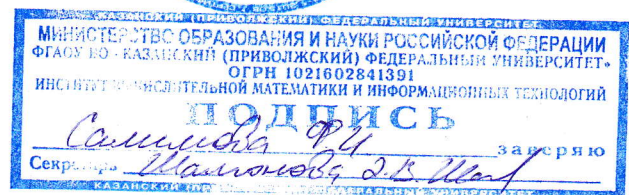 КАЗАНСКИЙ (ПРИВОЛЖСКИЙ) ФЕДЕРАЛЬНЫЙ УНИВЕРСИТЕТ
МИНИСТЕРСТВО ОБРАЗОВАНИЯ И НАУКИ РОССИЙСКОЙ ФЕДЕРАЦИИ
ФГАОУ ВО «КАЗАНСКИЙ (ПРИВОЛЖСКИЙ) ФЕДЕРАЛЬНЫЙ УНИВЕРСИТЕТ»
ОГРН 1021602841391
ИНСТИТУТ ВЫЧИСЛИТЕЛЬНОЙ МАТЕМАТИКИ И ИНФОРМАЦИОННЫХ ТЕХНОЛОГИЙ
ПОДПИСЬ
Салимова Ф И заверяю
Секретарь
КАЗАНСКИЙ ФЕДЕРАЛЬНЫЙ УНИВЕРСИТЕТ